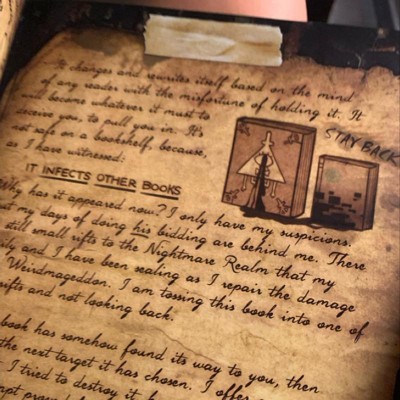 It changes and rewrites itself based on the mind
of any reader with the misfortune of holding it. It
will become whatever it must to
deceive you, to pull you in. It's
not safe on a bookshelf, because,
as I have witnessed:
STAY BACK
IT INFECTS OTHER BOOKS
Why has it appeared now? I only have my suspicions.
but my days of doing his bidding are behind me. There
still small rifts to the Nightmare Realm that my
and I have been sealing as I repair the damage
Weirdmageddon. I am tossing this book into one of
rifts and not looking back.
book has somehow found its way to you, then
the next target it has chosen. I offer
I tried to destroy it, b